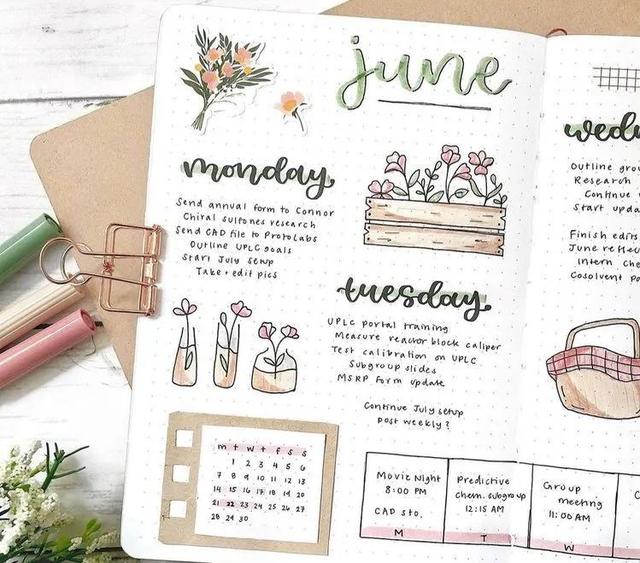 june
monday
Send annual form to Connor
Chiral sultones research
Send CAD file to ProtoLabs
Outline UPLC goals
Start July setup
Take + edit pics
tuesday
UPLC portal training
Measure reactor block caliper
Test calibration on UPLC
Subgroup slides
MSRP form update
Continue July setup
post weekly?
Outline
Research
Continue
Start
Finish edits
June
intern
Cosolvent
m t w t f s s
1 2 3 4 5 6
7 8 9 10 11 12 13
14 15 16 17 18 19 20
21 22 23 24 25 26 27
28 29 30
Movie Night
8:00 PM
CAD sto.
M
Predictive
chem. subgroup
12:15 AM
T
Group
meeting
11:00 AM
W